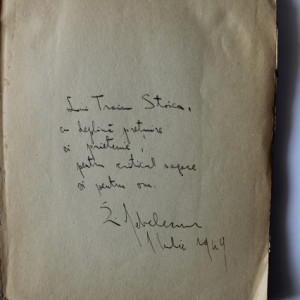 Lui Traian Stoica,
cu deplină prețuire
și prietenie,
pentru criticul sagace
și pentru om.
Jebeleanu
Iulie 1949